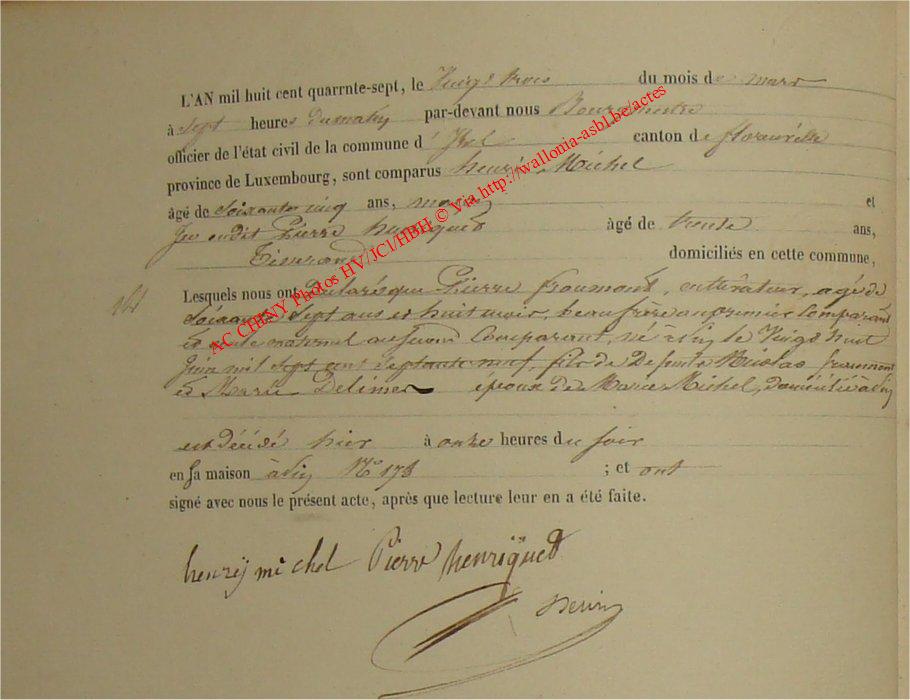 L'AN mil huit cent quarrnte-sept, le Vingt trois du mois de mars
à sept heures du matin par-devant nous Bourgmestre
officier de l'état civil de la commune d' canton de florenville
province de Luxembourg, sont comparus henri Michel
âgé de soixante cinq ans, et
Pierre henriquet âgé de trente ans,
Tisserand domiciliés en cette commune,
Lesquels nous ont déclaré que Pierre fromont, cultivateur, agé de
soixante sept ans et huit mois, beau frère au premier Comparant
et oncle maternel au second Comparant, né à le Vingt huit
Juin mil sept cent septante neuf, fils de Defunte Nicolas fromont
et Marie Delimes époux de Marie Michel, domicilié à
est décédé hier à onze heures du soir
en sa maison N° 178 ; et ont
signé avec nous le présent acte, après que lecture leur en a été faite.
henrÿ michel Pierre henriquet
AC CHINY Photos HV/JCl/HBH © Via http://wallonia-asbl.be/actes